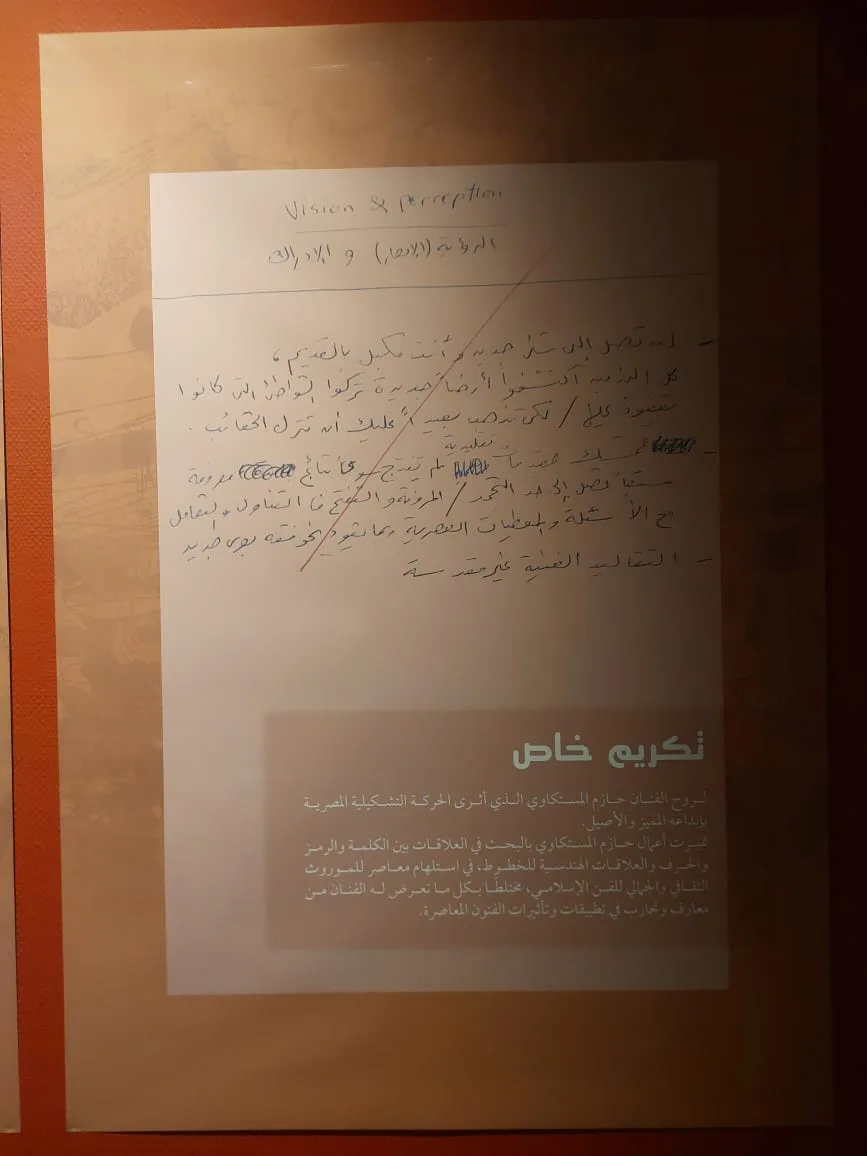 Vision & Perception
الرؤية (الإبصار) و الإدراك
- لن تصل إلى شئ جديد و أنت مكبل بالقديم ،
كل الذين اكتشفوا أرضاً جديدة تركوا الشواطئ التى كانوا
يقفون عليها / لكى تذهب بعيداً عليك أن تترك الحقائب .
تقليدية
- تمسك بنتج سوى نتائج معروفة
مسبقاً تصل إلى حد التجمد / المرونة و التفتح فى التناول والتعامل
مع الأسئلة والمعطيات العصرية ربما تقود جديد
- التقاليد الفنية غير مقدسة
تكريم خاص
لروح الفنان حازم المستكاوي الذي أثرى الحركة التشكيلية المصرية
بإبداعه المميز والأصيل.
تميزت أعمال حازم المستكاوي بالبحث في العلاقات بين الكلمة والرمز
والحرف والعلاقات الهندسية للخطوط، في استلهام معاصر للموروث
الثقافي والجمالي للفن الإسلامي، مختلطًا بكل ما تعرض له الفنان من
معارف وتجارب في تطبيقات وتأثيرات الفنون المعاصرة.